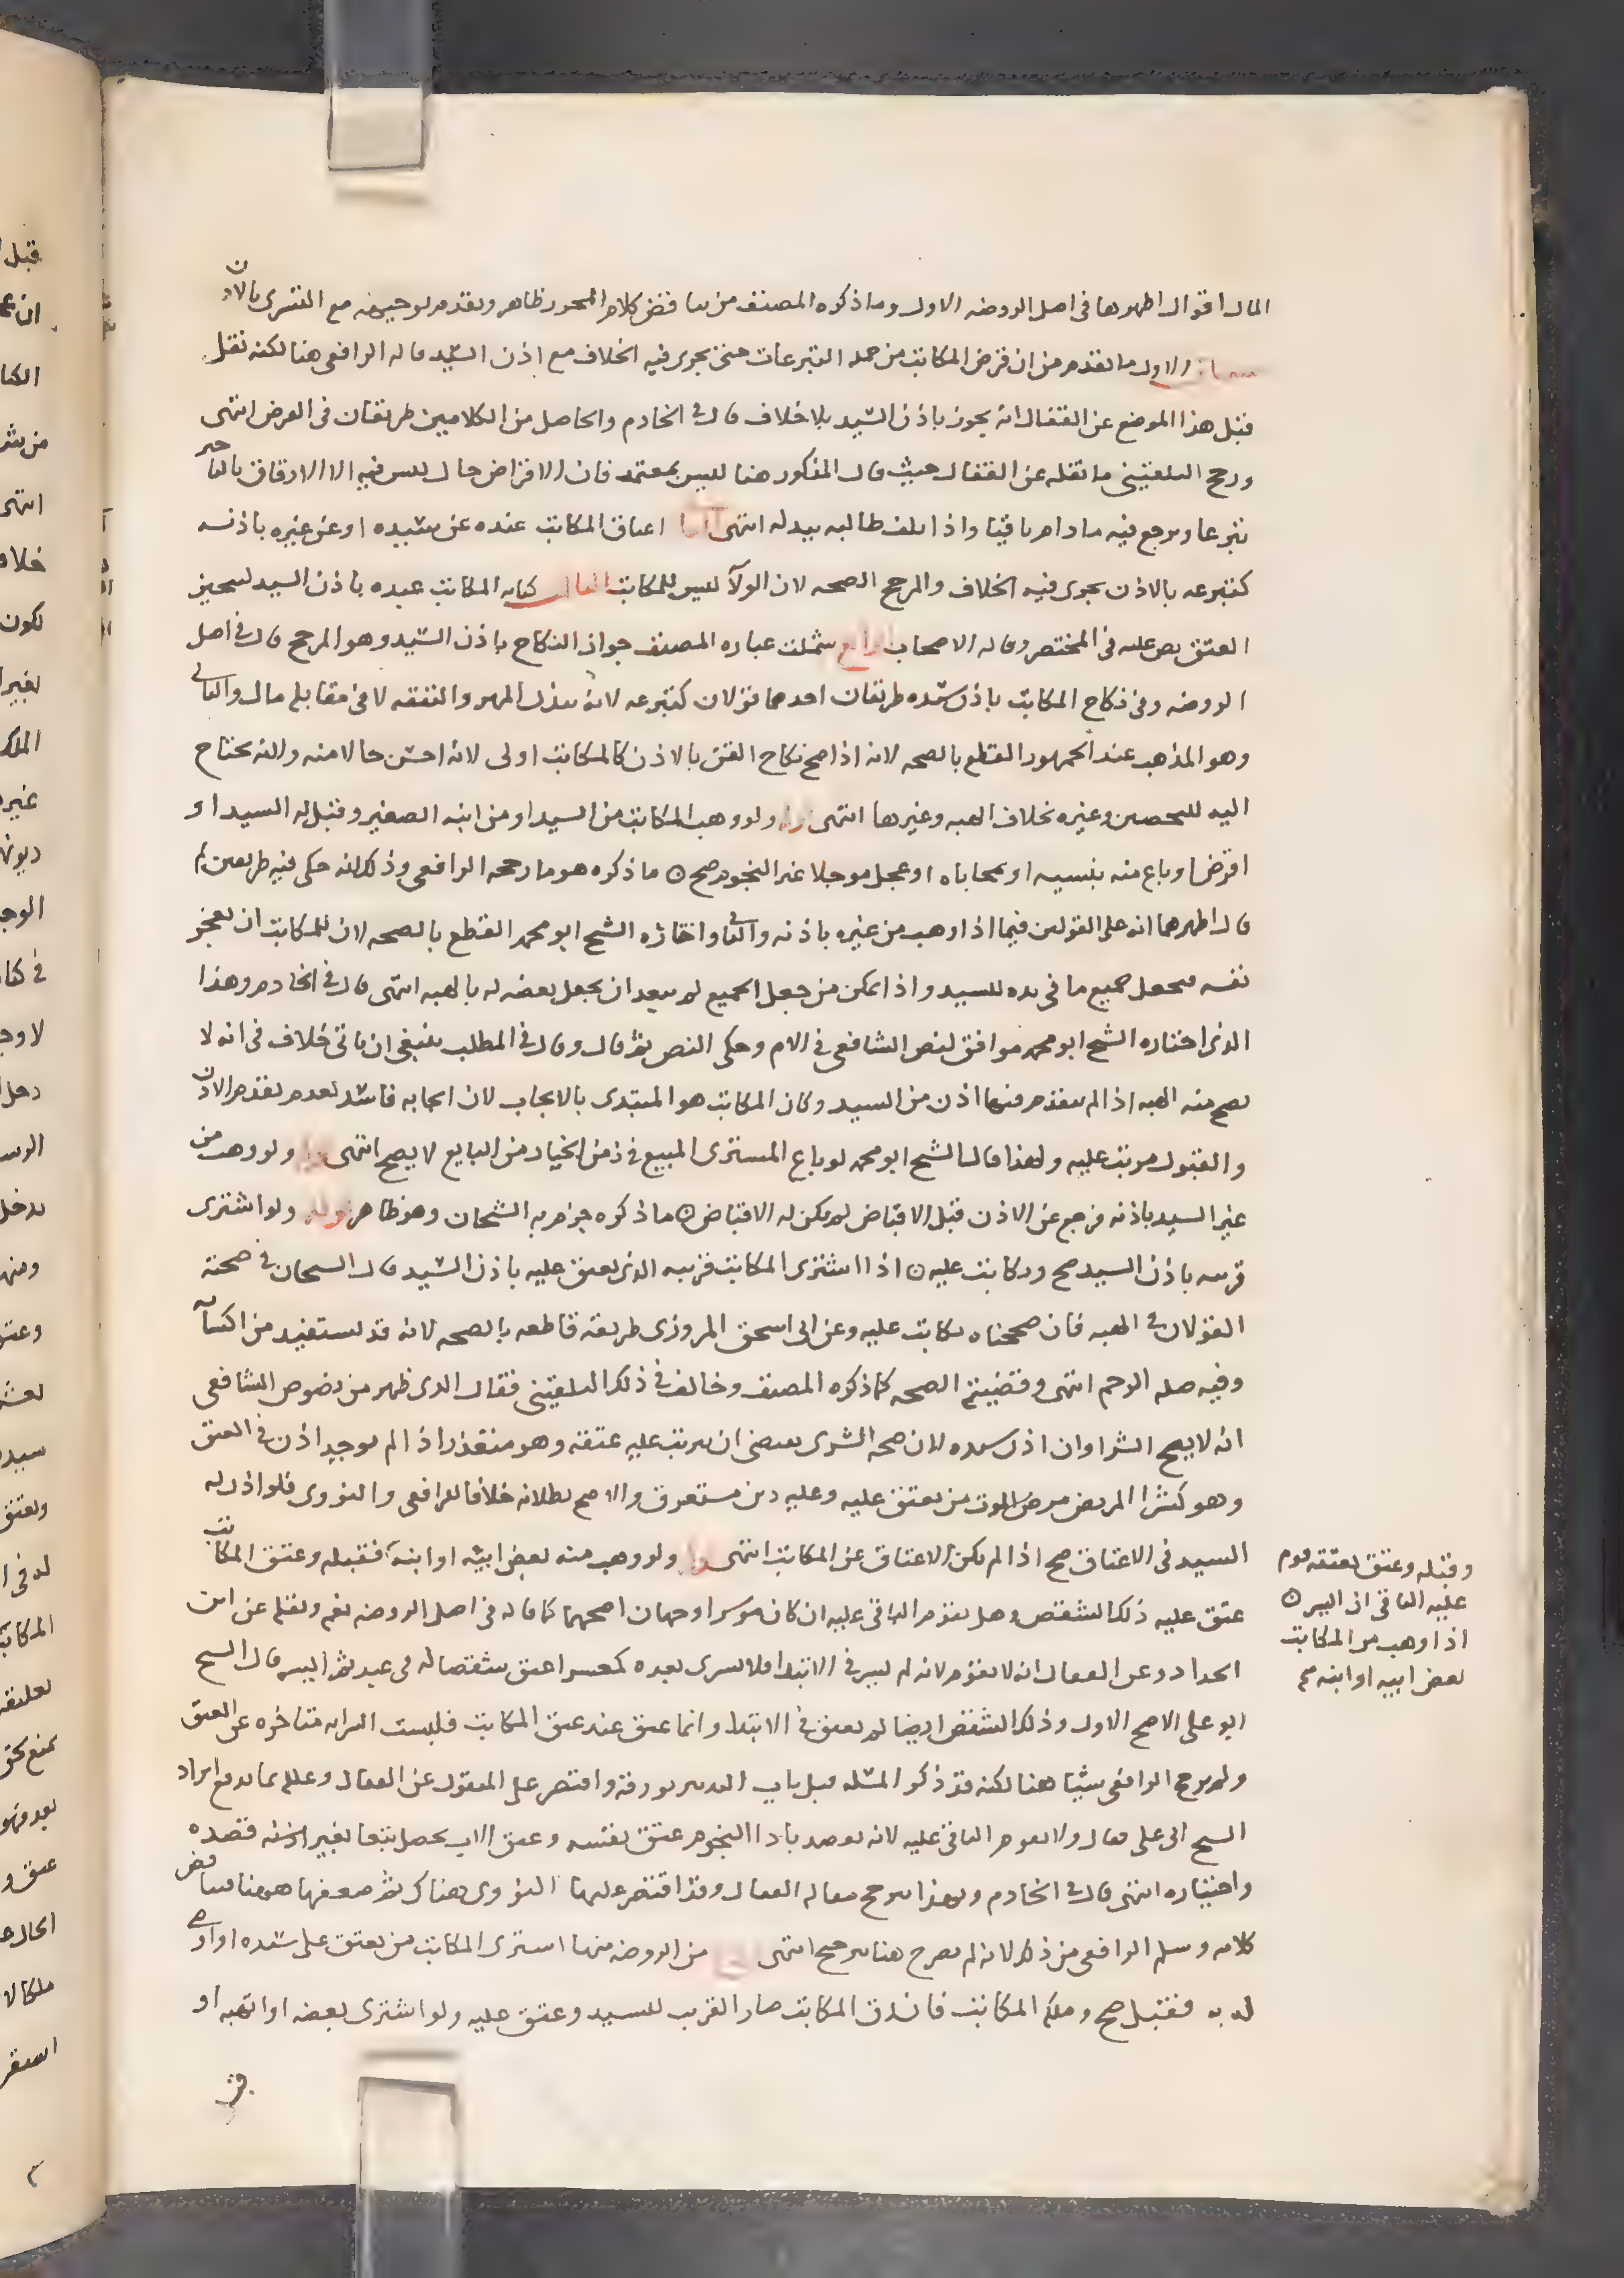 المال اقوال اظهرها في اصل الروضه الاول وما ذكره المصنف من تناقض كلام المحرر ظاهر وتقدم توجيهه مع التسري بالاذن
الاول ما تقدم من ان قرض المكاتب من جمله التبرعات حتى يجري فيه الخلاف مع اذن السيد قاله الرافعي هنا لكنه نقل
قبل هذا الموضع عن القفال انه يجوز باذن السيد بلا خلاف قال في الخادم والحاصل من الكلامين طريقان في القرض انتهى
ورجح البلقيني ما نقله عن القفال حيث قال المذكور هنا ليس بمعتمد فان الاقراض حال ليس فيه الا الارفاق بالتاخير
تبرعا ويرجع فيه ما دام باقيا واذا تلف طالبه ببدله انتهى اعتاق المكاتب عبده عن سيده او عن غيره باذنه
كتبرعه بالاذن يجري فيه الخلاف والمرجح الصحه لان الولآ ليس للمكاتب الثالث كتابه المكاتب عبده باذن السيد لتنجيز
العتق نص عليه في المختصر وقاله الاصحاب الرابع شملت عباره المصنف جواز النكاح باذن السيد وهو المرجح قال في اصل
الروضه وفي نكاح المكاتب باذن سيده طريقان احدهما قولان كتبرعه لانه يبذل المهر والنفقه لا في مقابله مال والثاني
وهو المذهب عند الجمهور القطع بالصحه لانه اذا صح نكاح القن بالاذن فالمكاتب اولى لانه احسن حالا منه ولانه يحتاج
اليه للتحصين وغيره بخلاف الهبه وغيرها انتهى قوله ولو وهب المكاتب من السيد او من ابنه الصغير وقبل له السيد او
اقترض او باع منه بنسيه او بمحاباه او عجل موجلا غير النجوم صح ه ما ذكره هو ما رجحه الرافعي وذلك انه حكى فيه طريقين ثم
قال اظهرهما انه على القولين فيما اذا وهب من غيره باذنه والثاني واختاره الشيخ ابو محمد القطع بالصحه لان للمكاتب ان يعجز
نفسه فيجعل جميع ما في يده للسيد واذا تمكن من جعل الجميع لم يبعد ان يجعل بعضه له بالهبه انتهى قال في الخادم وهذا
الذي اختاره الشيخ ابو محمد موافق لنص الشافعي في الام وحكى النص ثم قال وقال في المطلب ينبغي ان ياتي خلاف في انه لا
يصح منه الهبه اذا لم يتقدم منها اذن من السيد وكان المكاتب هو المبتدي بالايجاب لان ايجابه فاسد لعدم تقدم الاذن
والقبول مرتب عليه ولهذا قال الشيخ ابو محمد لو باع المشتري المبيع في زمن الخيار من البايع لا يصح انتهى قوله ولو وهب من
غير السيد باذنه فرجع عن الاذن قبل الاقباض لم يكن له الاقباض ه ما ذكره جزم به الشيخان وهو ظاهر قوله ولو اشترى
قريبه باذن السيد صح وتكاتب عليه ه اذا اشترى المكاتب قريبه الذي يعتق عليه باذن السيد قال الشيخان في صحته
القولان في الهبه فان صححناه تكاتب عليه وعن ابي اسحق المروزي طريقه قاطعه بالصحه لانه قد يستفيد من اكسابه
وفيه صله الرحم انتهى وقضيته الصحه كما ذكره المصنف وخالف في ذلك البلقيني فقال الذي ظهر من نصوص الشافعي
انه لا يصح الشرا وان اذن سيده لان صحه الشرى يقتضي ان يترتب عليه عتقه وهو متعذر اذا لم يوجد اذن في العتق
وهو كشرا المريض مرض الموت من يعتق عليه وعليه دين مستغرق والاصح بطلانه خلافا للرافعي والنووي فلو اذن له
السيد في الاعتاق صح اذا لم يكن الاعتاق عن المكاتب انتهى قوله ولو وهب منه بعض ابيه او ابنه فقبله وعتق المكاتب
عتق عليه ذلك الشقص وهل يقوم الباقي عليه ان كان موسرا وجهان اصحهما كما قاله في اصل الروضه نعم ونقله عن ابن
الحداد وعن القفال انه لا يقوم لانه لم يسر في الابتدا فلا يسري بعده كمعسر اعتق شقصا له في عبد ثم ايسر قال الشيخ
ابو علي الاصح الاول وذلك الشقص ايضا لم يعتق في الابتدا وانما عتق عند عتق المكاتب فليست السرايه متاخره عن العتق
ولم يرجح الرافعي شيئا هنا لكنه قد ذكر المسئله قبيل باب التدبير بورقه واقتصر على المنقول عن القفال وعلله بما يدفع ايراد
الشيخ ابي علي فقال ولا يقوم الباقي عليه لانه يقصد باداا النجوم عتق نفسه وعتق الاب يحصل تبعا بغير اذنه قصده
واختياره انتهى قال في الخادم ولهذا يترجح مقاله القفال وقد اقتصر عليها النووي هناك ثم ضعفها هو هنا فتناقض
كلامه وسلم الرافعي من ذلك لانه لم يصرح هنا بترجيح انتهى من الروضه منها اشترى المكاتب من يعتق على سيده او اوصي
له به فقبل صح وملكه المكاتب فان رق المكاتب صار القريب للسيد وعتق عليه ولو اشترى بعضه او اتهبه او
وقبله وعتق بعتقه قوم
عليه الباقي ان ايسر ه
اذا وهب من المكاتب
بعض ابيه او ابنه صح